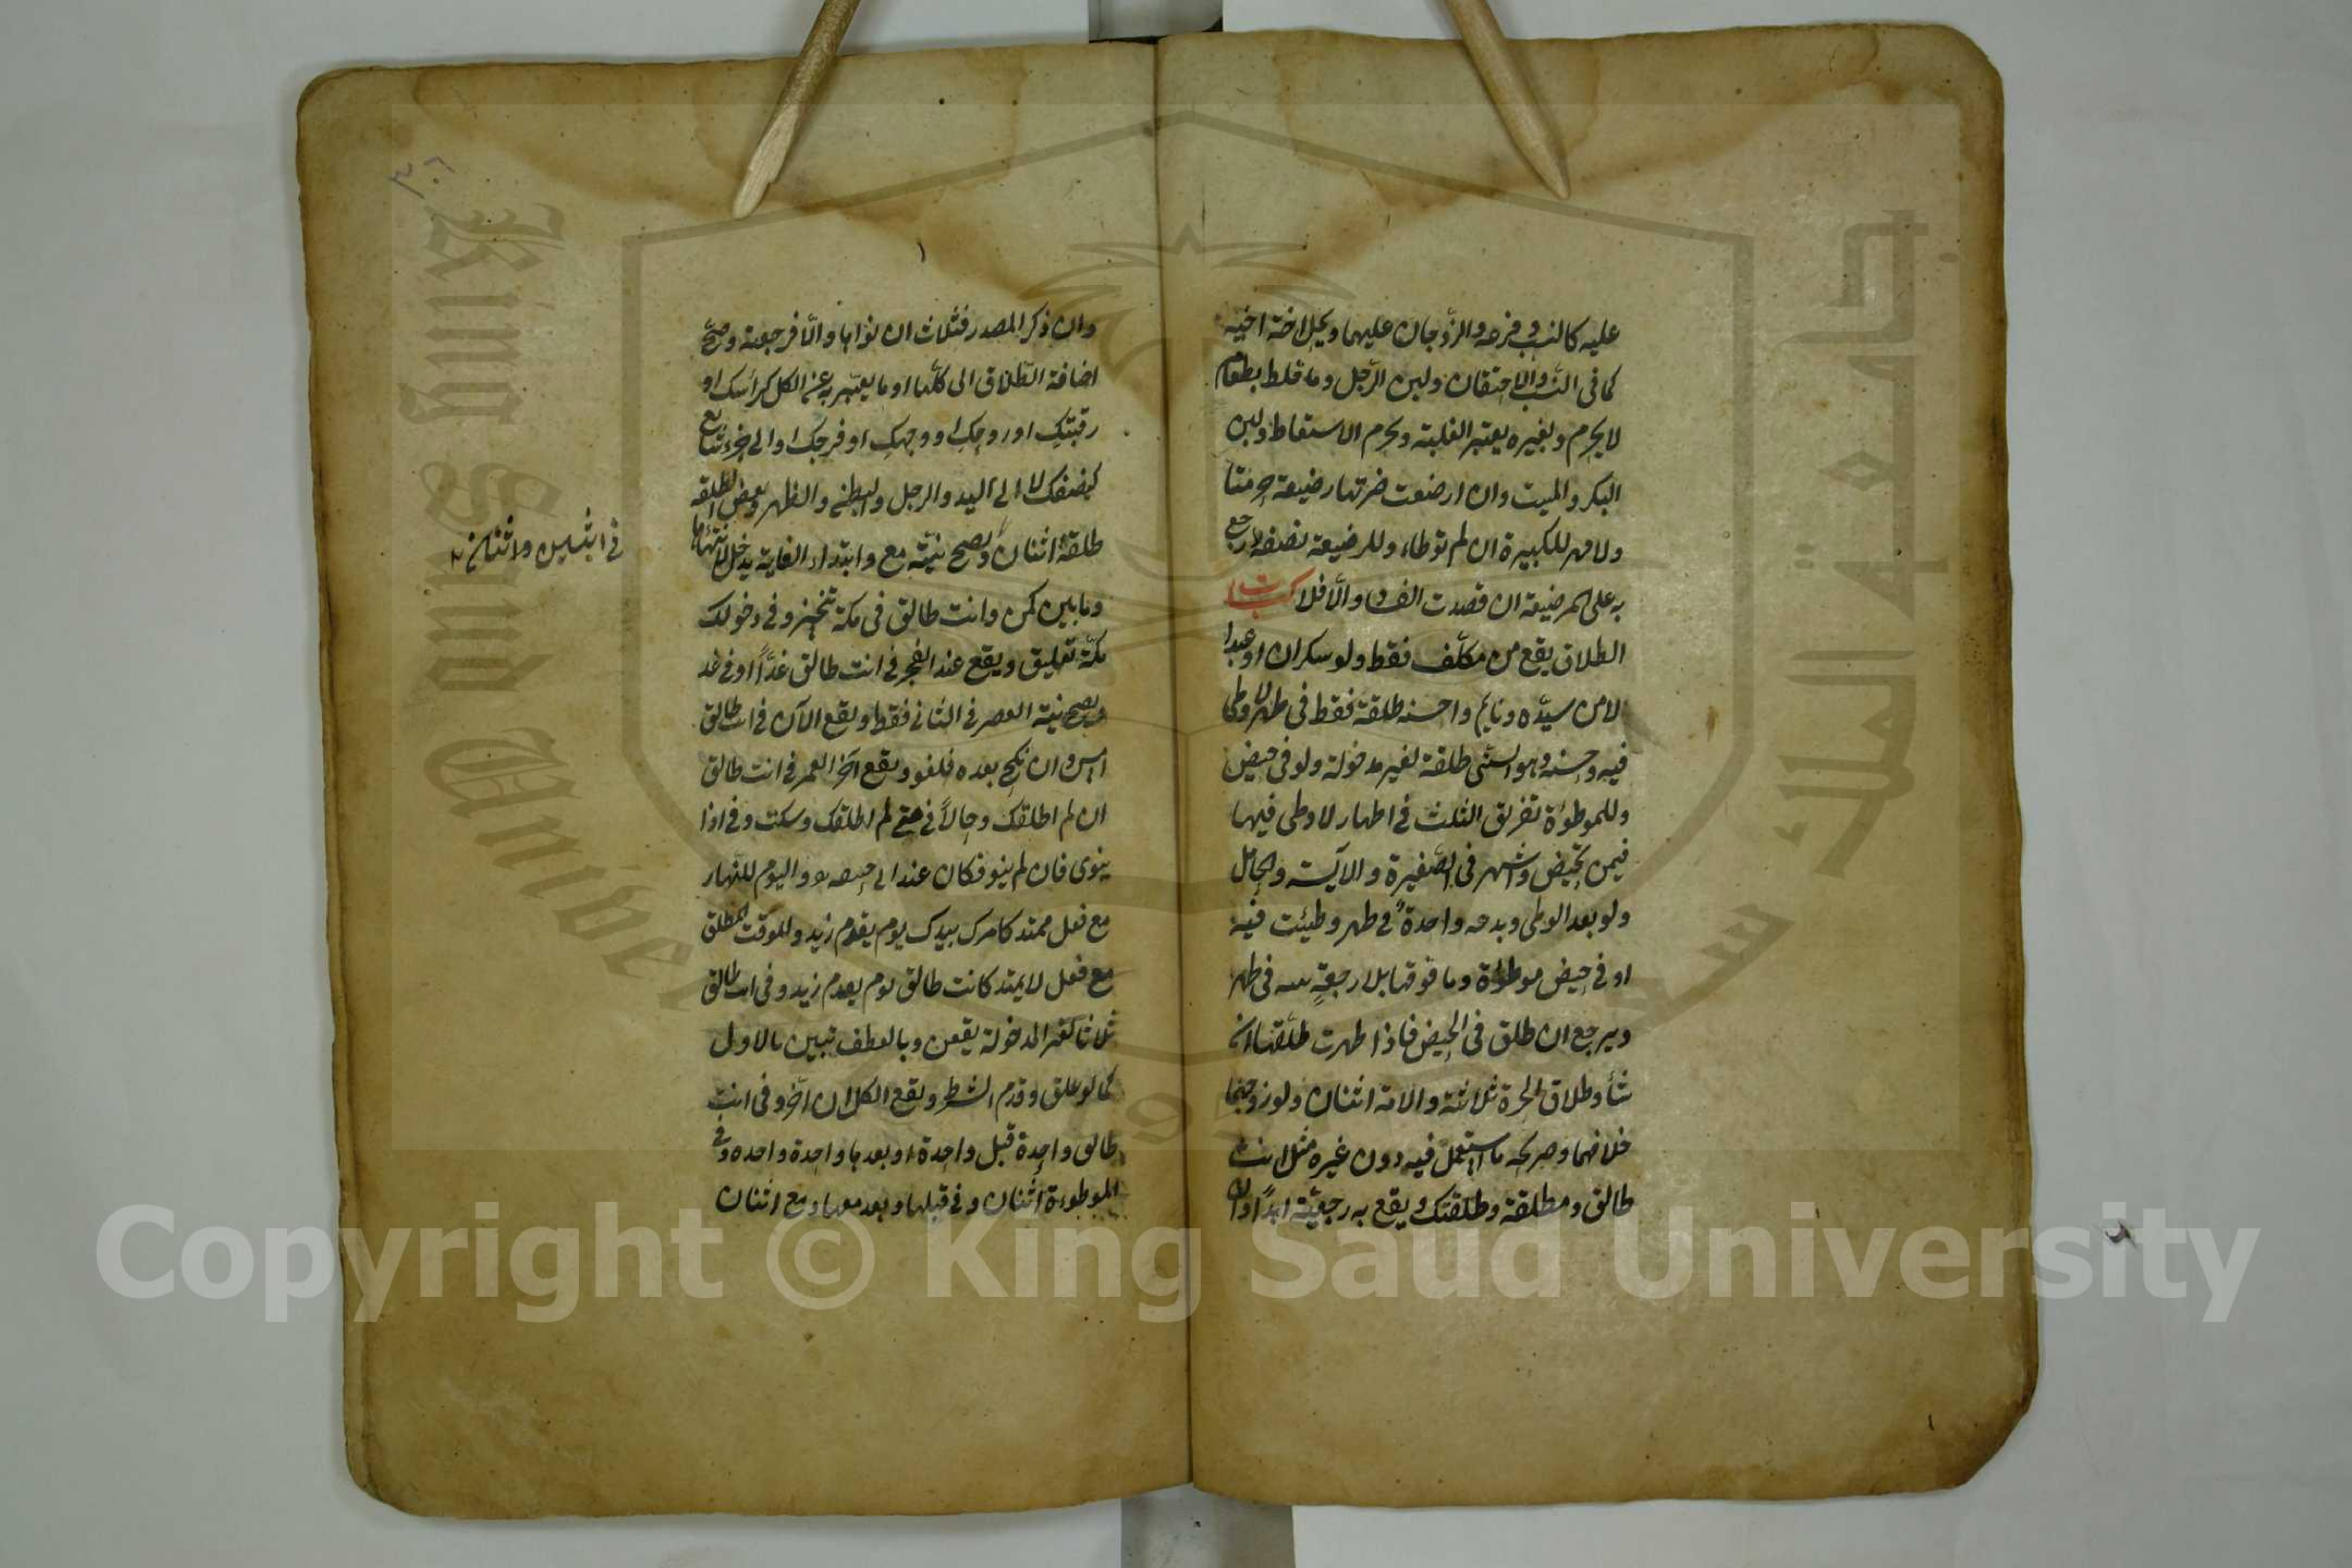 عليه كالنسب وفرعه والزوجان عليهما ويحل اخت اخيه
كما في النسب والاحتقان ولبن الرجل وما خلط بطعام
لا يحرم وبغيره يعتبر الغلبة ويحرم الاستعاط ولبن
البكر والميت وان ارضعت ضرتها رضيعة حرمتا
ولا مهر للكبيرة ان لم توطاء وللرضيعة نصفه ورجع
به على المرضعة ان قصدت الفساد والا فلا كتاب
الطلاق يقع من مكلف فقط ولو سكران او عبدا
لا من سيده ونايم واحسنه طلقة فقط في طهر لا وطى
فيه وحسنه وهو السني طلقة لغير مدخولة ولو في حيض
وللموطوة تفريق الثلث في اطهار لا وطى فيها
فيمن تحيض واشهر في الصغيرة والآيسة والحامل
ولو بعد الوطى وبدعه واحدة في طهر وطيئت فيه
او في حيض موطوة وما فوقها بلا رجعة بينه في طهر
ويرجع ان طلق في الحيض فاذا طهرت طلقها ان
شأ وطلاق الحرة ثلاثة والامة اثنان ولو زوجهما
خلافهما وصريحه ما استعمل فيه دون غيره مثل انت
طالق ومطلقة وطلقتك ويقع به رجعية ابدا وان
٣٠٦
وان ذكر المصدر فثلاث ان نواها والا فرجعية وصح
اضافة الطلاق الى كلها او ما يعبر به عن الكل كراسك او
رقبتك او روحك او وجهك او فرجك او الى جزء شايع
كنصفك لا الى اليد والرجل والبطن والظهر وبعض الطلقة
طلقة اثنان ويصح نية مع وابتداء الغاية يدخل لا انتهاها
في اثنين اثنان
وما بين كمن وانت طالق في مكة تنجيز وفي دخولك
مكة تعليق ويقع عند الفجر في انت طالق غدا او في غد
ويصح نية العصر في الثاني فقط ويقع الآن في انت طالق
امس وان نكح بعده فلغو ويقع آخر العمر في انت طالق
ان لم اطلقك وحالا في متى لم اطلقك وسكت وفي اذا
ينوى فان لم ينو فكان عند ابي حنيفه واليوم للنهار
مع فعل ممتد كامرك بيدك يوم يقدم زيد وللوقت المطلق
مع فعل لا يمتد كانت طالق يوم يقدم زيد وفي انت طالق
ثلاثا لغير المدخولة يقعن وبالعطف تبين بالاول
كما لو علق وقدم الشرط ويقع الكل ان اخر وفي انت
طالق واحدة قبل واحدة او بعدها واحدة واحده وفي
الموطوءة اثنان وفي قبلها وبعد معها ومع اثنان
جامعة الملك سعود
King Saud University
1957
Copyright © King Saud University